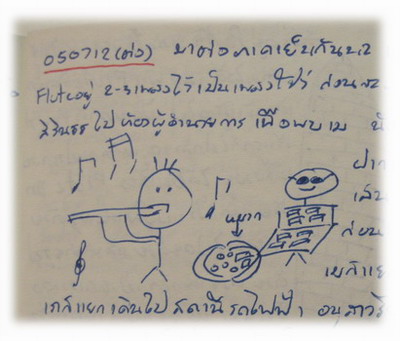 050712(ต่อ) มาต่อภาคเย็นกันนะ
Flute อยู่ 2-3 เพลงไว้เป็นเพลงโชว์ ก่อน
สิรินธร ไปห้องผู้อำนวยการ เพื่อพบ
ฝาก
หมูกะ
ก่อน
เกส์แยกเดินไปสถานีรถไฟฟ้า อนุสาวรี